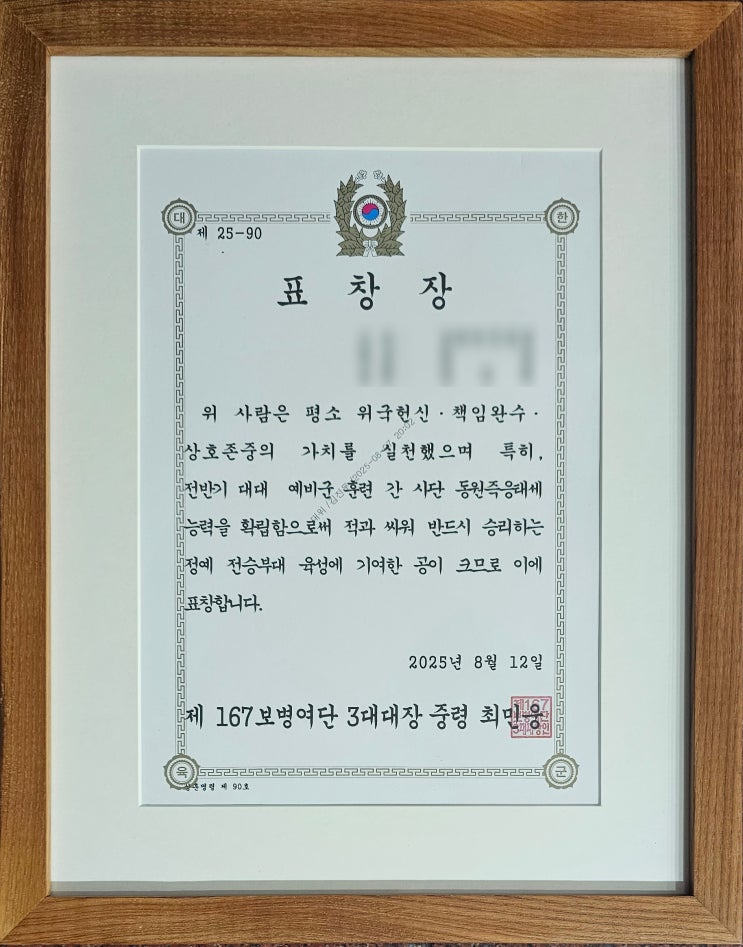 대 한
제 25-90
표 창 장
위 사람은 평소 위국헌신·책임완수·
상호존중의 가치를 실천했으며 특히,
전반기 대대 예비군 훈련 간 시단 동원즉응태세
능력을 확립함으로써 적과 싸워 반드시 승리하는
정예 전승부대 육성에 기여한 공이 크므로 이에
표창합니다.
2025년 8월 12일
제 167보병여단 3대대장 중령 최민웅
육 군
제 90호